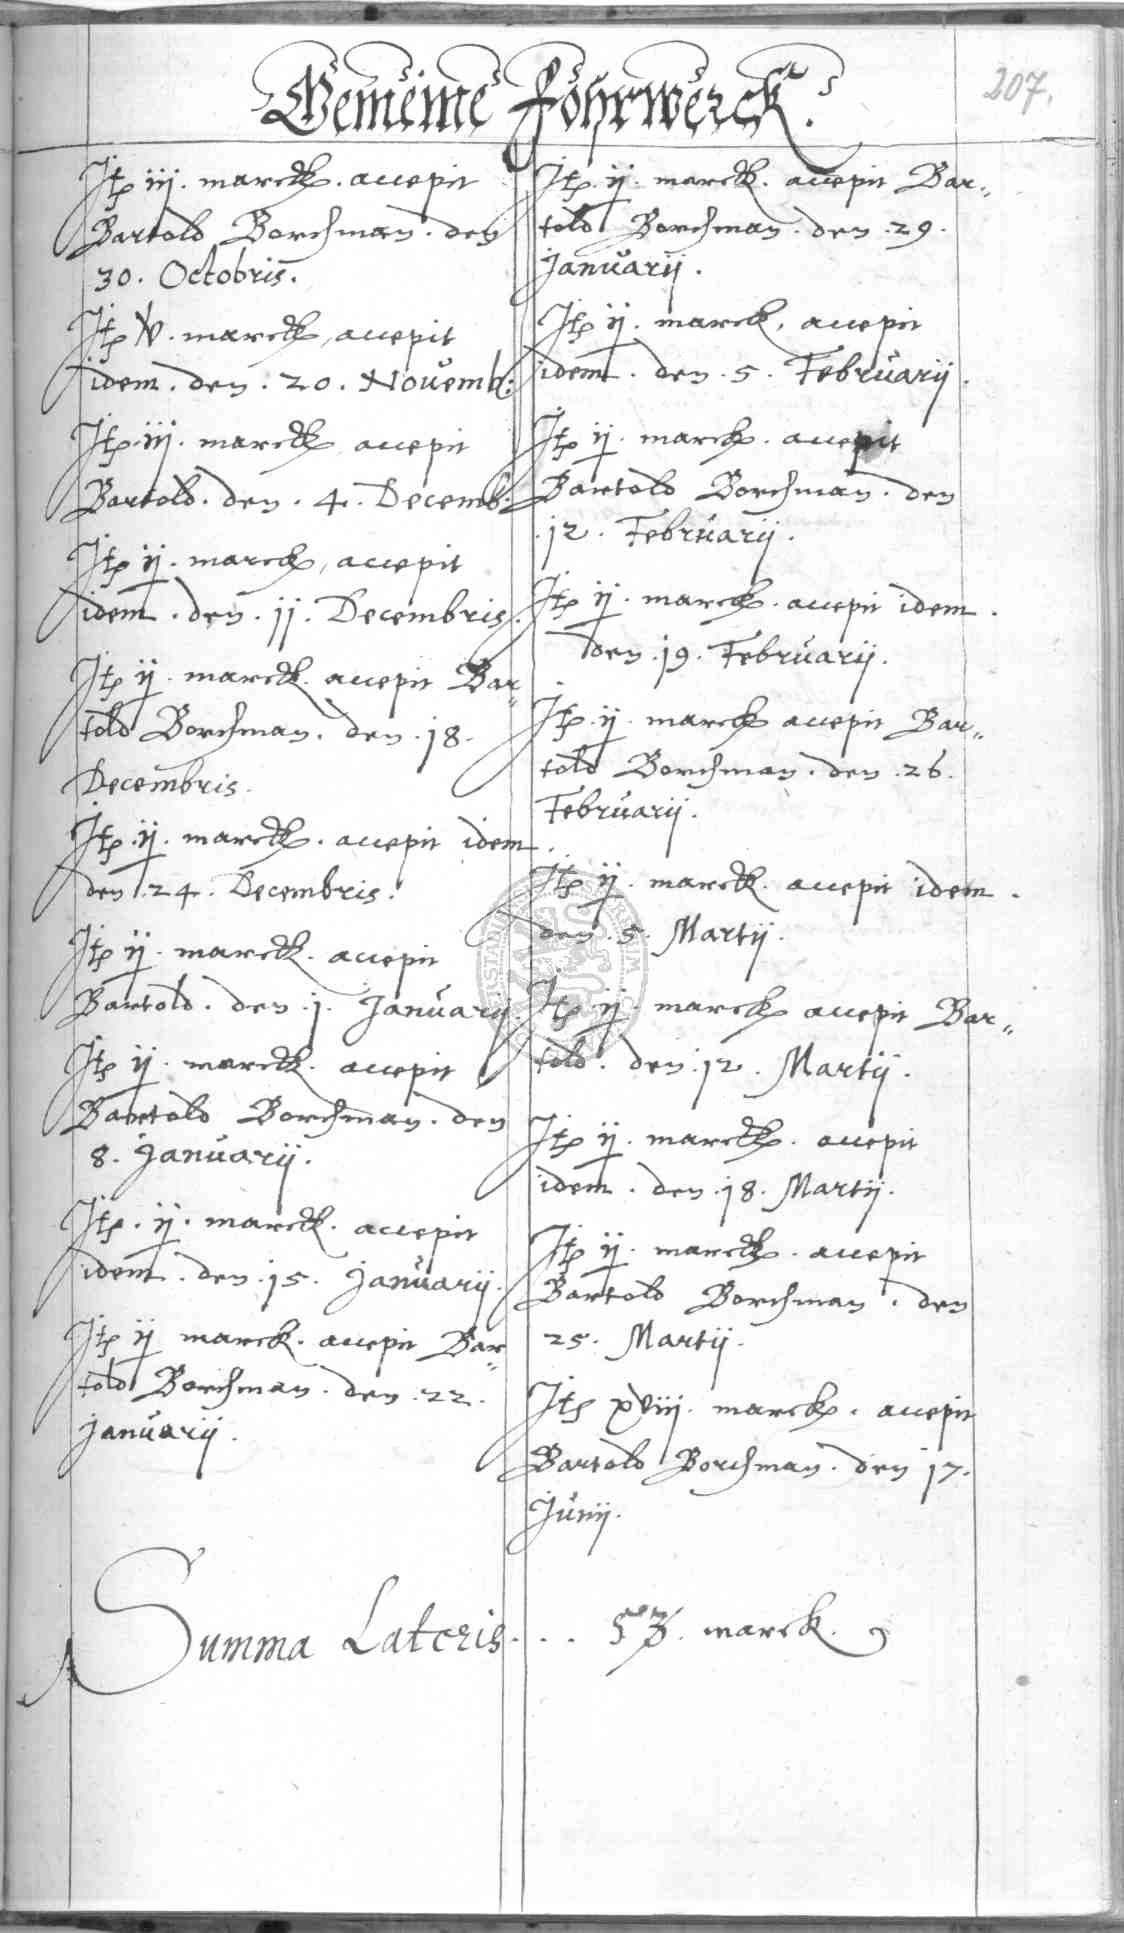 Gemeine Föhrwerck.
207.
Itꝫ iij. marckꝫ. accepit
Bartold Borchman. den
30. Octobris.
Itꝫ v. marckꝫ, accepit
idem. den. 20. Novemb:
Itꝫ. iij. marckꝫ accepit
Bartold. den. 4. Decemb.
Itꝫ ij. marckꝫ, accepit
idem. den. 11. Decembris.
Itꝫ ij. marck. accepit Bar„
told Borchman. den. 18.
Decembris.
Itꝫ. ij. marckꝫ. accepit idem
den. 24. Decembris.
Itꝫ ij. marck. accepit
Bartold. den. 1. Januarij.
Itꝫ ij. marck. accepit
Bartold Borchman. den
8. Januarij.
Itꝫ. ij. marck. accepit
idem. den. 15. Januarij.
Itꝫ ij marck. accepit Bar„
told Borchman. den. 22.
Januarij.
Itꝫ. ij. marck. accepit Bar„
told Borchman. den. 29.
Januarij.
Itꝫ ij. marck, accepit
idem. den. 5. Februarij.
Itꝫ ij. marckꝫ. accepit
Bartold Borchman. den
12. Februarij.
Itꝫ ij. marckꝫ. accepit idem.
den. 19. Februarij.
Itꝫ. ij. marckꝫ accepit Bar„
told Borchman. den. 26.
Februarij.
Itꝫ ij. marck. accepit idem.
den. 5. Martij.
Itꝫ. ij. marckꝫ accepit Bar„
told. den. 12. Martij.
Itꝫ ij. marckꝫ. accepit
idem. den. 18. Martij.
Itꝫ ij. marckꝫ. accepit
Bartold Borchman. den
25. Martij.
Itꝫ xviij. marckꝫ. accepit
Bartold Borchman. den 17.
Junij.
Summa Lateris. . . 53. marck.